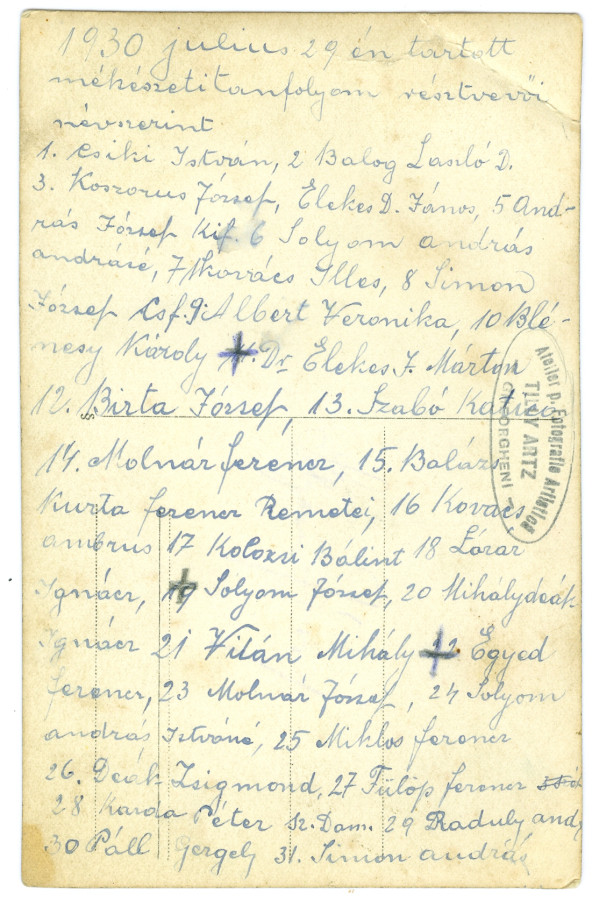 1930 julius 29 én tartott
méhészeti tanfolyam résztvevői
névszerint
1. Csiki István, 2 Balog László D.
3. Koszorus József, Elekes D. János, 5 And-
rás József Kif. 6 Solyom andrás
andrásé, 7 Kovács Illes, 8 Simon
József Csf. 9 Albert Veronika, 10 Blé-
nesy Károly Dr Elekes J. Márton
12. Birta József, 13. Szabó Katica
14. Molnár ferencz, 15. Balázs
Kurta ferencz Remetei, 16 Kovács
ambrus 17 Kolozsi Bálint 18 Lázár
Ignácz, 19 Solyom József, 20 Mihálydeák
Ignácz 21 Vitán Mihály 22. Egyed
ferencz, 23 Molnár József, 24 Solyom
andrás Istváné, 25 Miklos ferencz
26. Deák Zsigmond, 27 Fülöp ferencz
28 Karda Péter Sz. Dam. 29 Raduly and
30 Páll Gergely 31. Simon andrás
Atelier p. Fotografie Artistica
TILLY ARTZ
GHEORGHENI